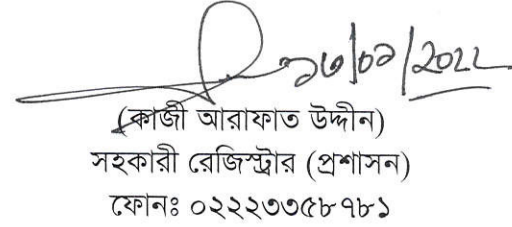 ১৩/০১/২০২২
(কাজী আরাফাত উদ্দীন)
সহকারী রেজিস্ট্রার (প্রশাসন)
ফোনঃ ০২২২৩৩৫৮৭৮১